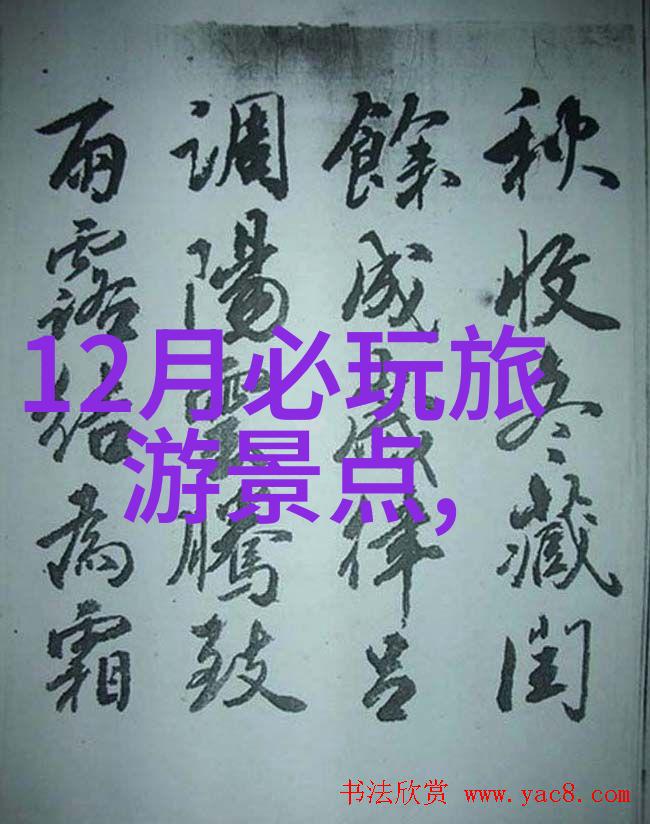 秋收冬藏閏
餘成歲律呂
調陽雲騰致
雨露結為霜
12月必玩旅
游景点,
书法欣赏 www.yac8.com